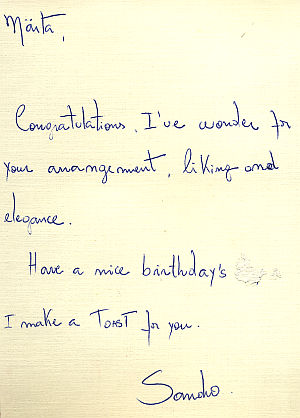 Märta,
Congratulations. I've wonder for
your arrangement, liking and
elegance.
Have a nice birthday's
I make a TOAST for you.
Sandro